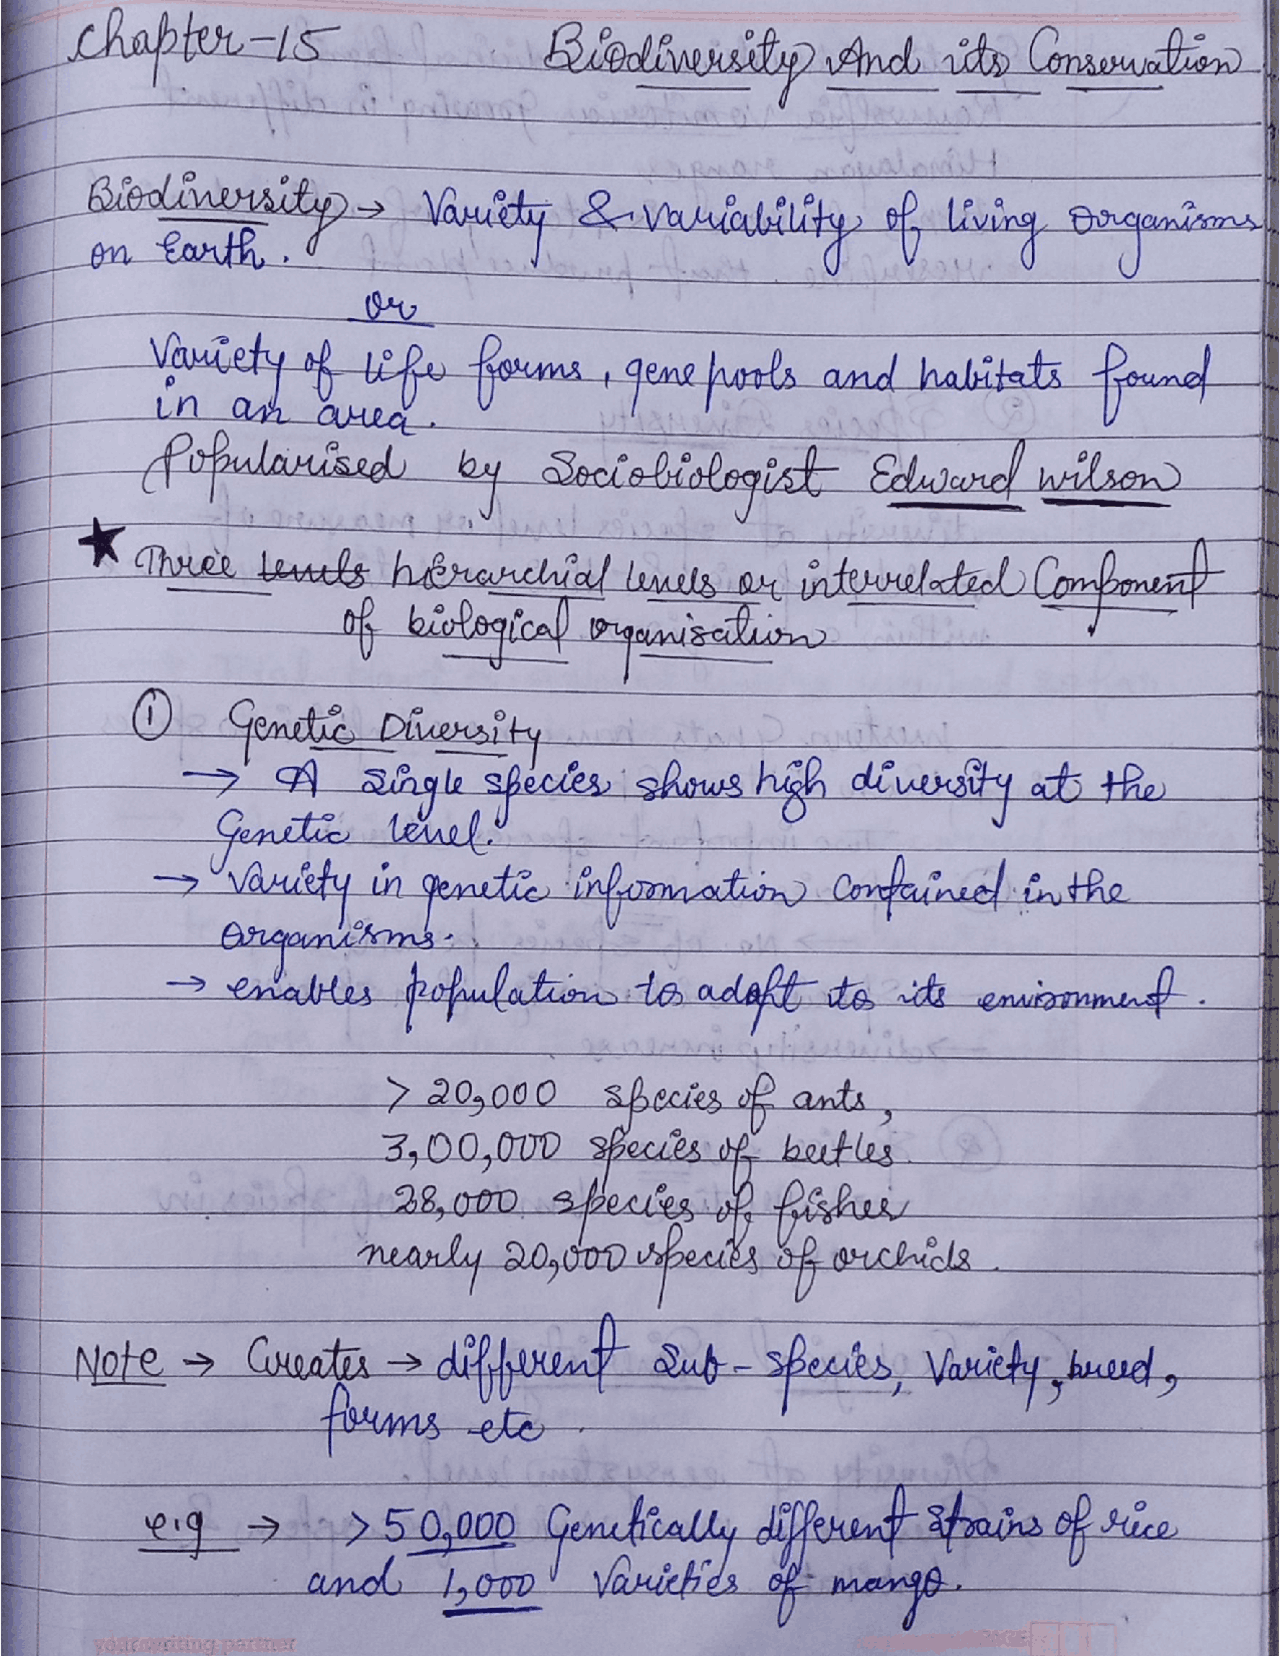 Chapter-15 Biodiversity And its Conservation
Biodiversity → Variety & variability of living organisms
on Earth.
or
Variety of life forms, gene pools and habitats found
in an area.
Popularised by Sociobiologist Edward wilson
★ Three levels hierarchial levels or interrelated Component
of biological organisation
① Genetic Diversity
→ A single species shows high diversity at the
Genetic level.
→ variety in genetic information contained in the
organisms.
→ enables population to adapt to its environment.
> 20,000 species of ants,
3,00,000 species of beetles.
28,000 species of fishes
nearly 20,000 species of orchids.
Note → Creates → different Sub-species, Variety, breed,
forms etc.
e.g → > 50,000 Genetically different strains of rice
and 1,000 varieties of mango.
your writing partner